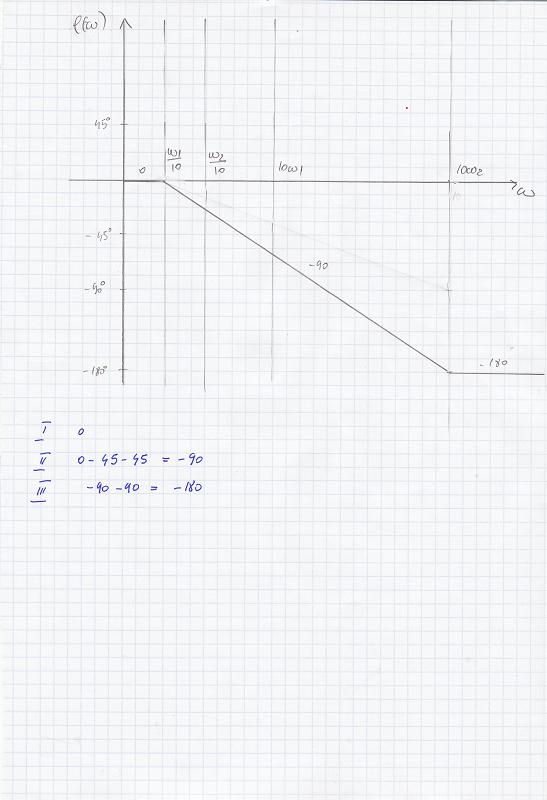 φ(ω)
45°
0
ω1/10
ω2/10
10ω1
10ω2
ω
-45°
-90
-90°
-180
-180°
I 0
II 0-45-45 = -90
III -90-90 = -180